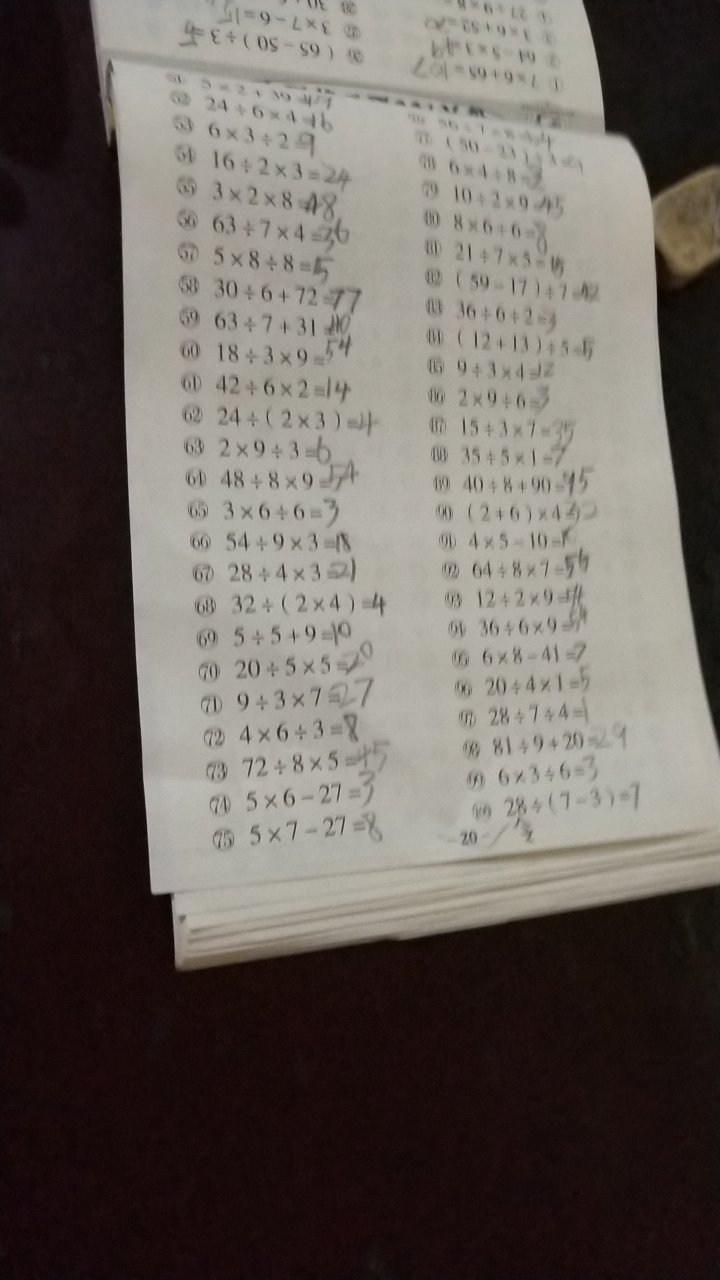 52 24÷6×4=16
53 6×3÷2=9
54 16÷2×3=24
55 3×2×8=48
56 63÷7×4=36
57 5×8÷8=5
58 30÷6+72=77
59 63÷7+31=40
60 18÷3×9=54
61 42÷6×2=14
62 24÷(2×3)=4
63 2×9÷3=6
64 48÷8×9=54
65 3×6÷6=3
66 54÷9×3=18
67 28÷4×3=21
68 32÷(2×4)=4
69 5÷5+9=10
70 20÷5×5=20
71 9÷3×7=27
72 4×6÷3=8
73 72÷8×5=45
74 5×6-27=3
75 5×7-27=8
78 6×4÷8=3
79 10÷2×9=45
80 8×6÷6=8
81 21÷7×5=15
82 (59-17)÷7=
83 36÷6÷2=3
84 (12+13)÷5=5
85 9÷3×4=12
86 2×9÷6=3
87 15÷3×7=35
88 35÷5×1=7
89 40÷8+90=95
90 (2+6)×4=32
91 4×5-10=
92 64÷8×7=56
93 12÷2×9=54
94 36÷6×9=54
95 6×8-41=7
96 20÷4×1=5
97 28÷7÷4=1
98 81÷9+20=29
99 6×3÷6=3
100 28÷(7-3)=7
-20-